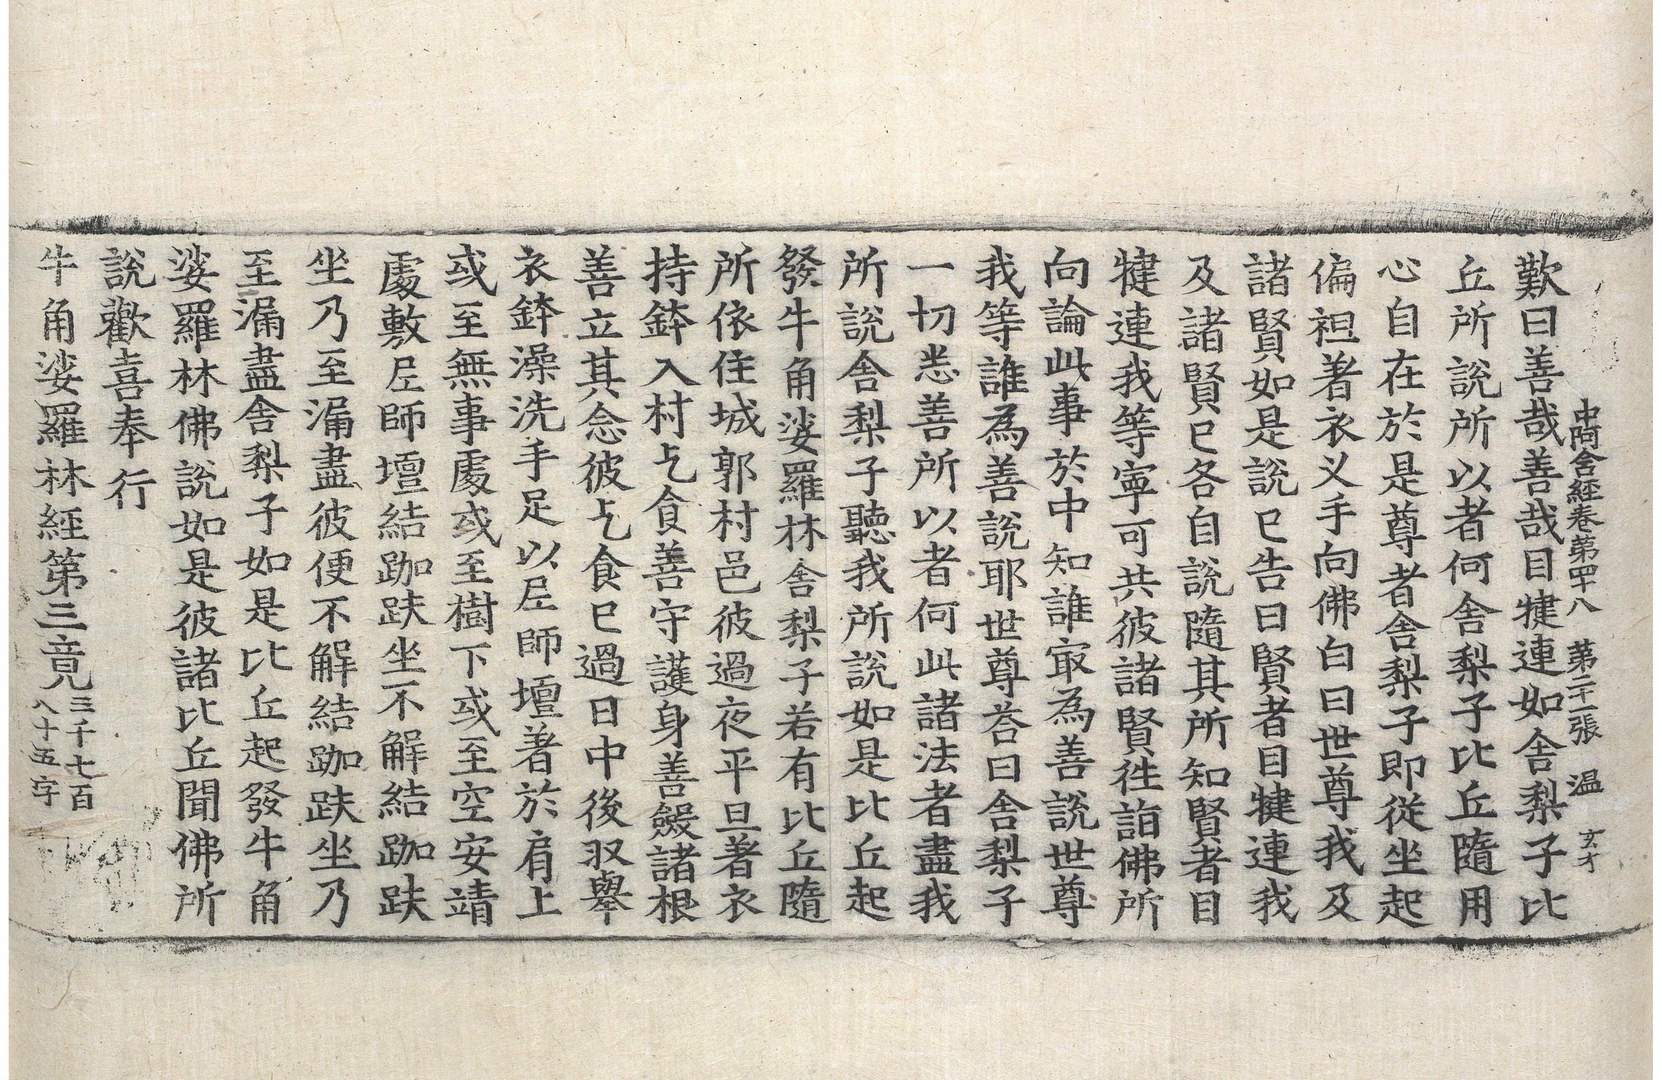 中阿含經卷第四十八　第二十一張　温　玄才
歎曰善哉善哉目犍連如舍梨子比
丘所說所以者何舍梨子比丘隨用
心自在於是尊者舍梨子即從坐起
偏袒著衣叉手向佛白曰世尊我及
諸賢如是說已告曰賢者目犍連我
及諸賢已各自說隨其所知賢者目
犍連我等寧可共彼諸賢徃詣佛所
向論此事於中知誰㝡為善說世尊
我等誰為善說耶世尊荅曰舍梨子
一切悉善所以者何此諸法者盡我
所說舍梨子聽我所說如是比丘起
發牛角娑羅林舍梨子若有比丘隨
所依住城郭村邑彼過夜平旦著衣
持鉢入村乞食善守護身善斂諸根
善立其念彼乞食已過日中後収舉
衣鉢澡洗手足以尼師壇著於肩上
或至無事處或至樹下或至空安靖
處敷尼師壇結跏趺坐不解結跏趺
坐乃至漏盡彼便不解結跏趺坐乃
至漏盡舍梨子如是比丘起發牛角
娑羅林佛說如是彼諸比丘聞佛所
說歡喜奉行
牛角娑羅林經第三竟三千七百八十五字